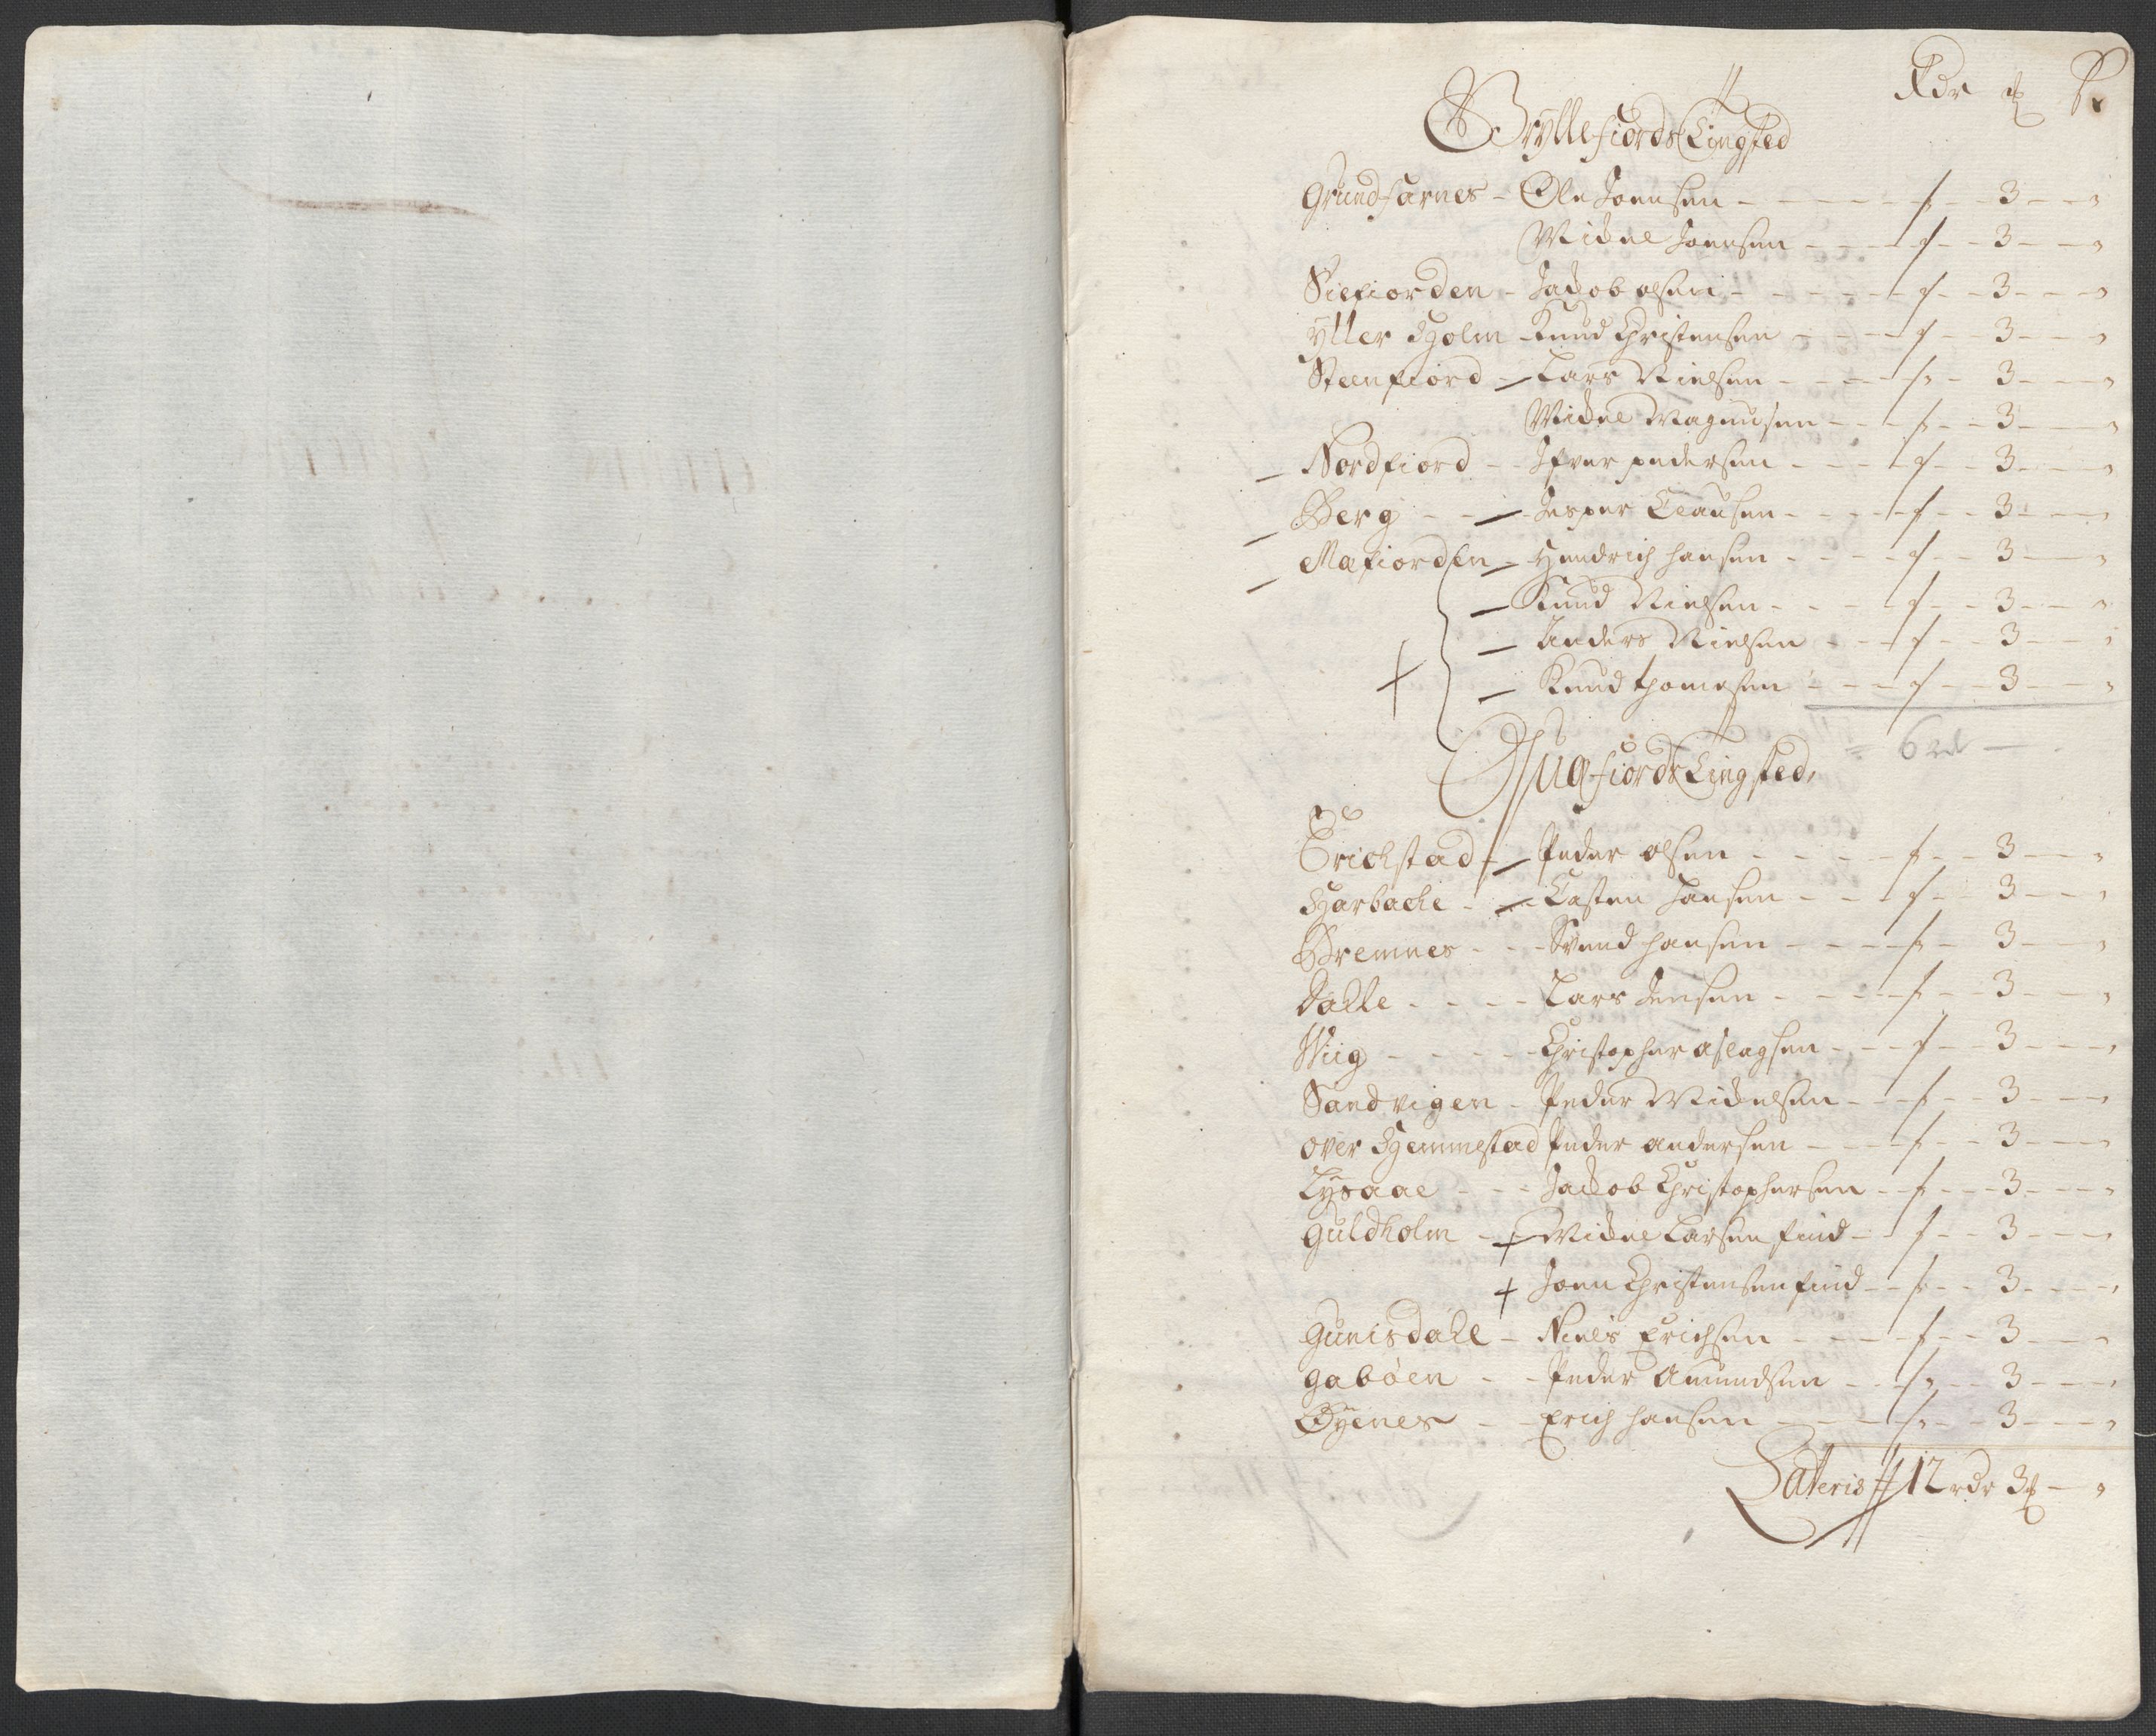 Rdr ẜ ß
Gryllefiords Tingsted
Grundfarnes - Ole Joensen - - 3 -
Mickel Joensen - - 3 -
Siefiorden - Jackob olsen - - 3 -
Ytter Holm - Knud Christensen - - 3 -
Steenfiord - Lars Nielsen - - 3 -
Mickel Magnusen - - 3 -
Nordfiord - Ifver pedersen - - 3 -
Berg - Jesper Clausen - - 3 -
Mefiorden - Hendrich hansen - - 3 -
Knud Nielsen - - 3 -
Anders Nielsen - - 3 -
+ Knud thomesen - - 3 -
6 rd -
Quæfiords Tingsted
Erichstad - Peder olsen - - 3 -
Harbache - Casten hansen - - 3 -
Bremnes - Svend hansen - - 3 -
Dahle - Lars Jensen - - 3 -
Wiig - Christopher aslagsen - - 3 -
Sandvigen - Peder Mickelsen - - 3 -
over Hemmestad Peder andersen - - 3 -
Lysaae - Jackob Christophersen - - 3 -
Guldholm - + Mickel Larsen find - - 3 -
+ Joen Christensen find - - 3 -
Gunisdahl - Niels Erichsen - - 3 -
gabøen - Peder Amundsen - - 3 -
Øyenes - Erich hansen - - 3 -
Lateris 12 rdr 3 -